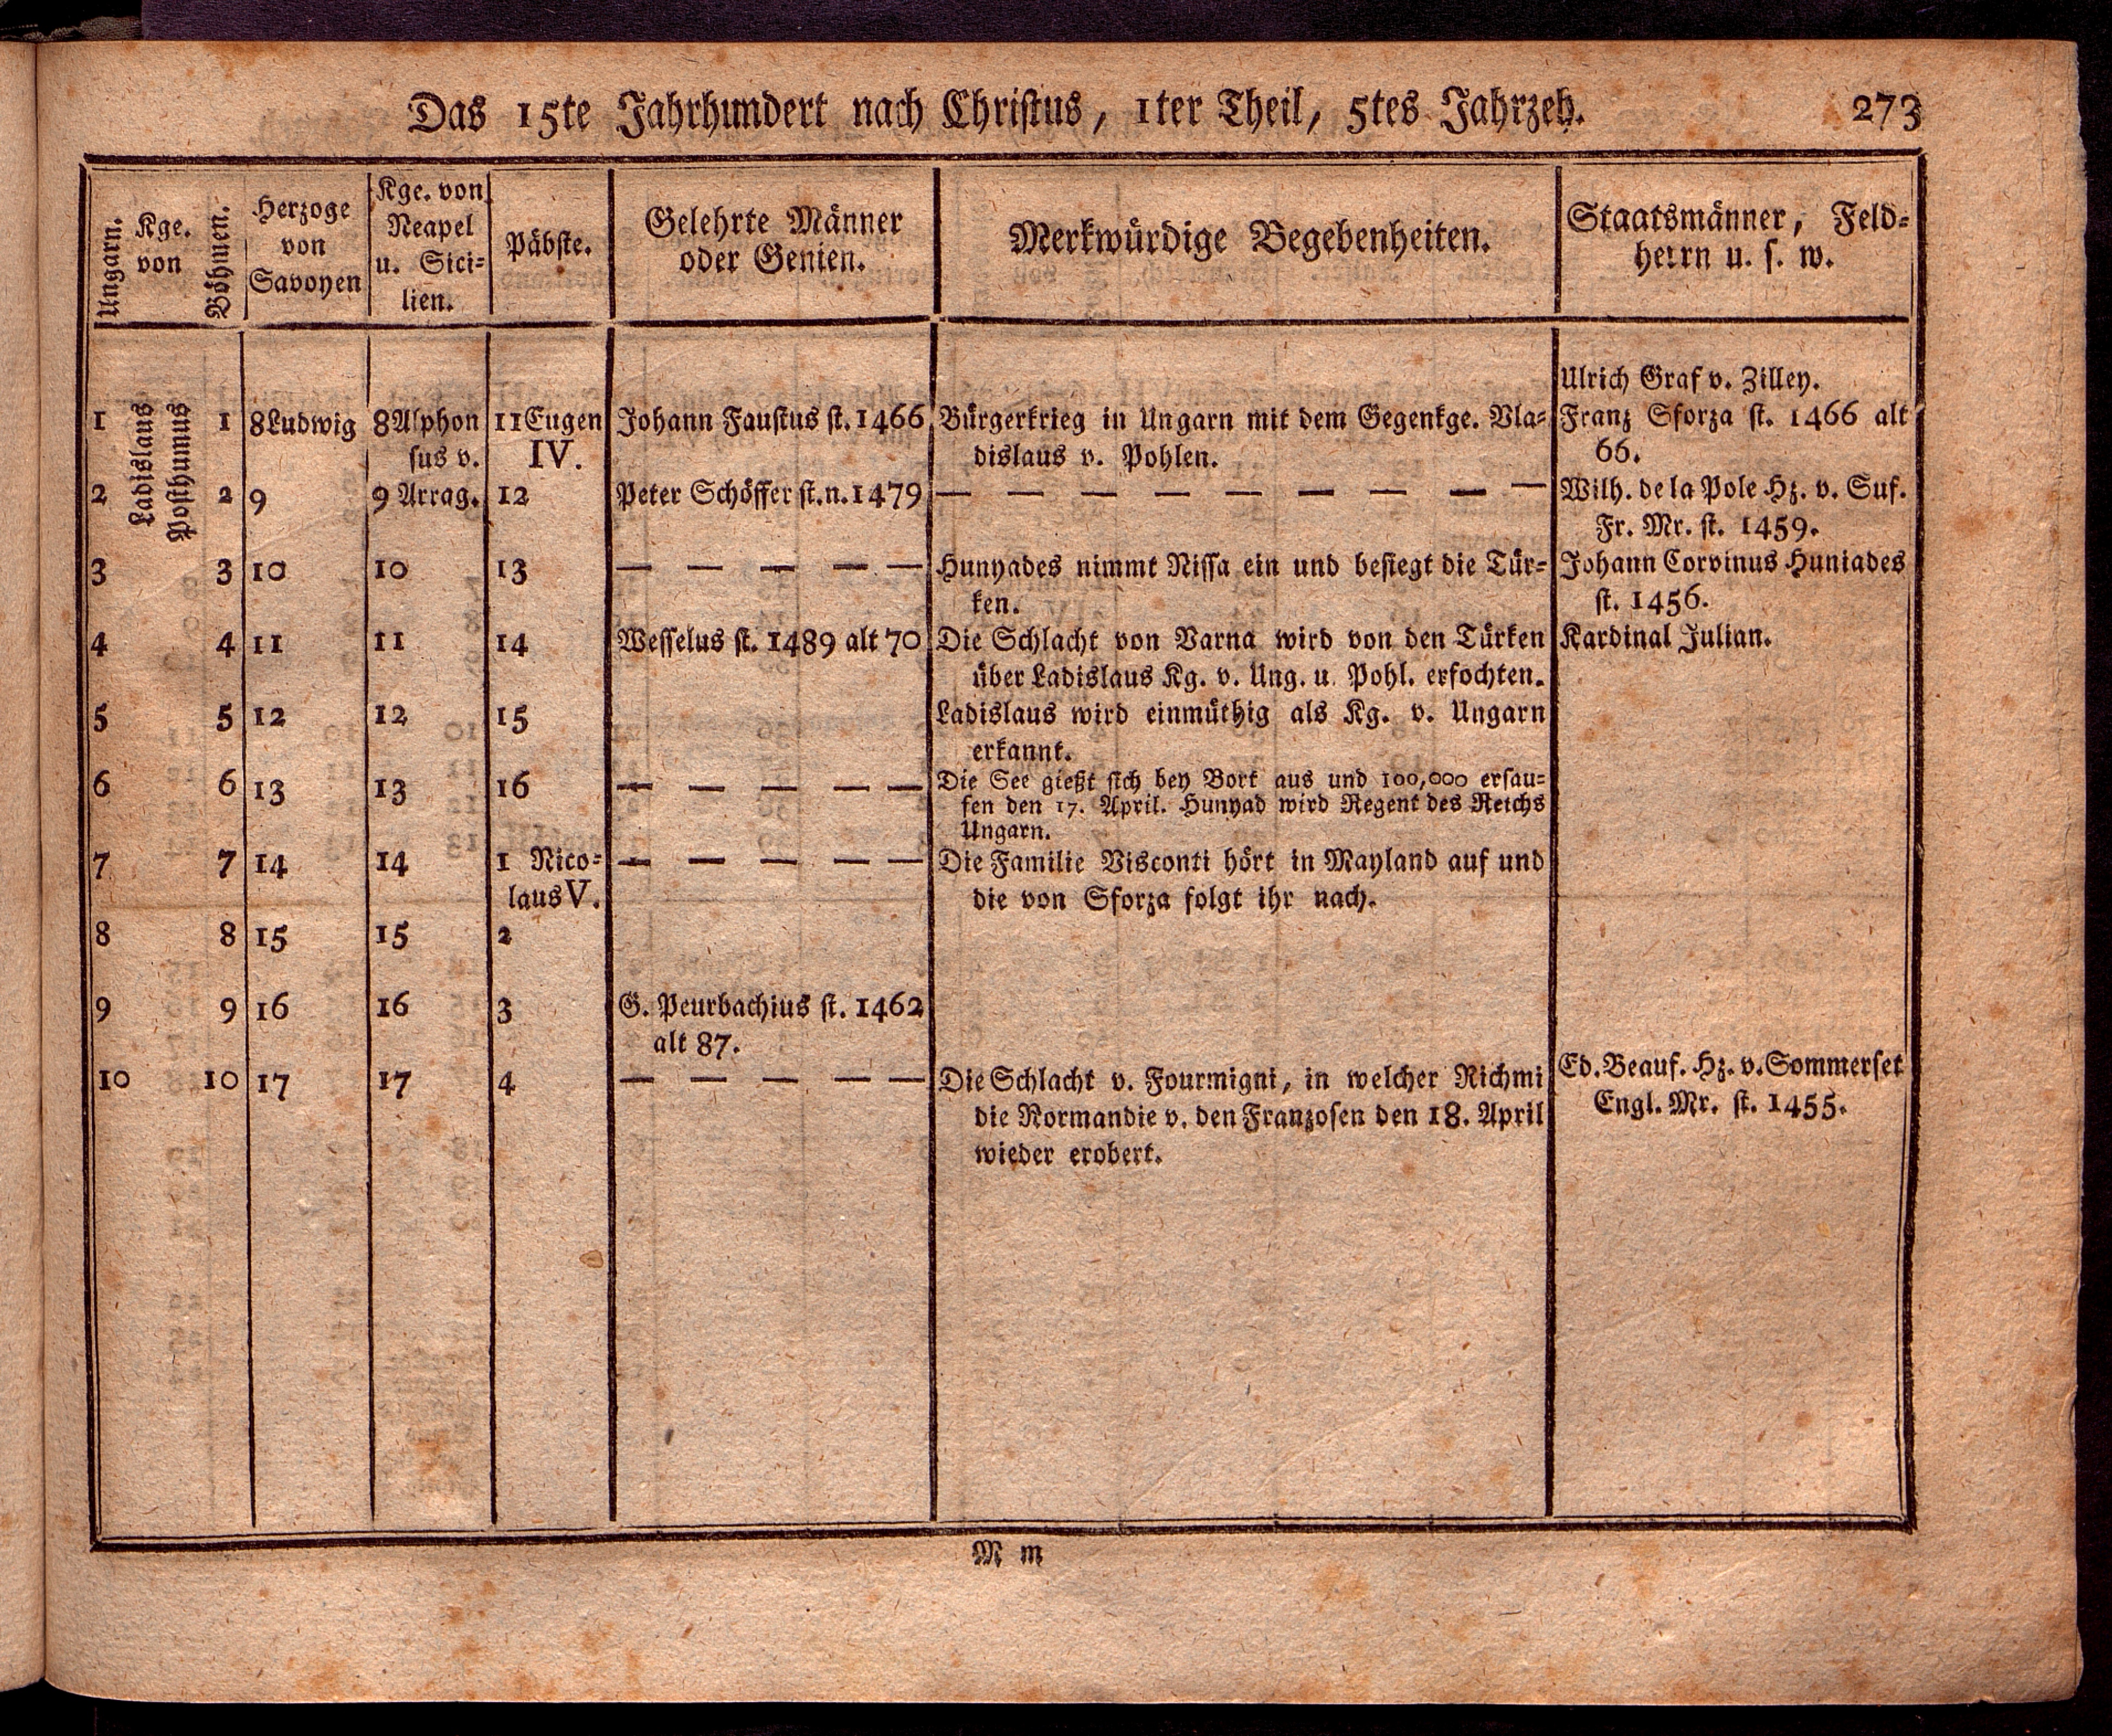 Das 15te Jahrhundert nach Christus, 1ter Theil, 5tes Jahrzeh.
273
Ungarn.
Kge.
von
Böhmen.
Herzoge
von
Savoyen
Kge. von
Neapel
u. Sici=
lien.
Päbste.
Gelehrte Männer
oder Genien.
Merkwürdige Begebenheiten.
Staatsmänner, Feld=
herrn u. s. w.
Ladislaus
Posthumus
Ulrich Graf v. Zilley.
1 1 8Ludwig 8Alphon 11Eugen Johann Faustus st. 1466 Bürgerkrieg in Ungarn mit dem Gegenkge. Vla= Franz Sforza st. 1466 alt
sus v. IV. dislaus v. Pohlen. 66.
2 2 9 9 Arrag. 12 Peter Schöffer st. n. 1479 — — — — — — — — — Wilh. de la Pole Hz. v. Suf.
Fr. Mr. st. 1459.
3 3 10 10 13 — — — — — Hunyades nimmt Nissa ein und besiegt die Tür= Johann Corvinus Huniades
ken. st. 1456.
4 4 11 11 14 Wesselus st. 1489 alt 70 Die Schlacht von Varna wird von den Türken Kardinal Julian.
über Ladislaus Kg. v. Ung. u. Pohl. erfochten.
5 5 12 12 15 Ladislaus wird einmüthig als Kg. v. Ungarn
erkannt.
6 6 13 13 16 — — — — — Die See gießt sich bey Bort aus und 100,000 ersau=
fen den 17. April. Hunyad wird Regent des Reichs
Ungarn.
7 7 14 14 1 Nico= — — — — — Die Familie Visconti hört in Mayland auf und
laus V. die von Sforza folgt ihr nach.
8 8 15 15 2
9 9 16 16 3 G. Peurbachius st. 1462
alt 87.
10 10 17 17 4 — — — — — Die Schlacht v. Fourmigni, in welcher Richmi Ed. Beauf. Hz. v. Sommerset
die Normandie v. den Franzosen den 18. April Engl. Mr. st. 1455.
wieder erobert.
M m